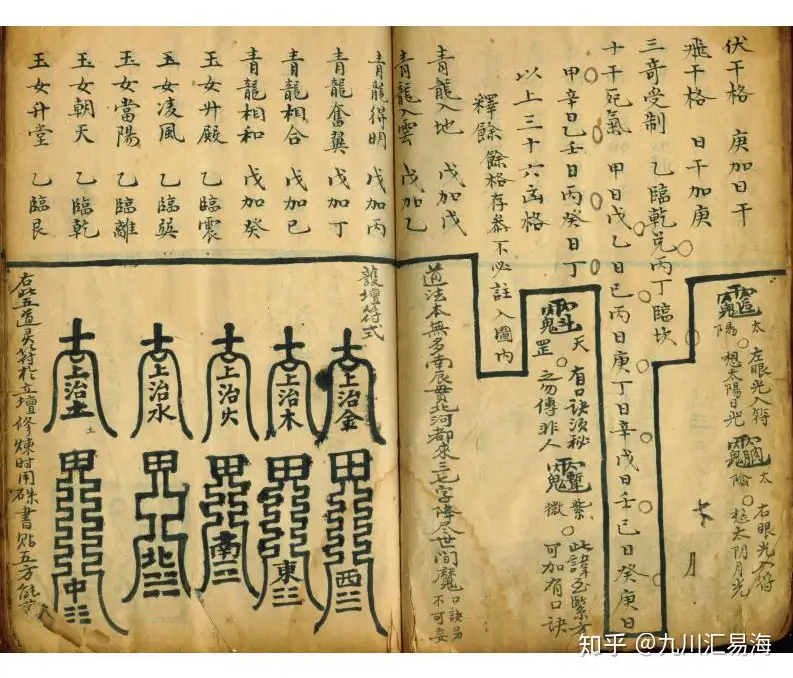 伏干格 庚加日干
飛干格 日干加庚
三奇受制 乙臨乾兌丙丁臨坎
十干死氣 甲日戊乙日己丙日庚丁日辛戊日壬己日癸庚日
甲辛日乙壬日丙癸日丁
以上三十六凶格
釋餘餘格存參不必註入圖內
青龍入地 戊加戊
青龍入雲 戊加乙
青龍得明 戊加丙
青龍奮翼 戊加丁
青龍相合 戊加己
青龍相和 戊加癸
玉女升殿 乙臨震
玉女凌風 乙臨巽
玉女當陽 乙臨離
玉女朝天 乙臨乾
玉女升堂 乙臨艮
太陽
左眼光入符
想太陽日光
太陰
右眼光入符
想太阴月光
天罡
有口诀须秘
之勿傳非人
紫微
此諱至緊方
可加有口诀
道法本無多南辰貫北河都來三七字降尽世間魔
口诀另
不可妄
護壇符式
古上治金
古上治木
古上治火
古上治水
古上治土
土
西
東三
南二
北
中
右此五道灵符於立壇修煉时用硃書貼五方能
知乎 @九川汇易海